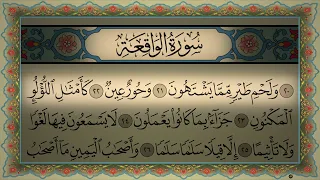 سُورَةُ الوَاقِعَة
٢٠ وَلَحْمِ طَيْرٍ مِّمَّا يَشْتَهُونَ ٢١ وَحُورٌ عِينٌ ٢٢ كَأَمْثَالِ اللُّؤْلُؤِ
الْمَكْنُونِ ٢٣ جَزَاءً بِمَا كَانُوا يَعْمَلُونَ ٢٤ لَا يَسْمَعُونَ فِيهَا لَغْوًا
وَلَا تَأْثِيمًا ٢٥ إِلَّا قِيلًا سَلَامًا سَلَامًا ٢٦ وَأَصْحَابُ الْيَمِينِ مَا أَصْحَابُ